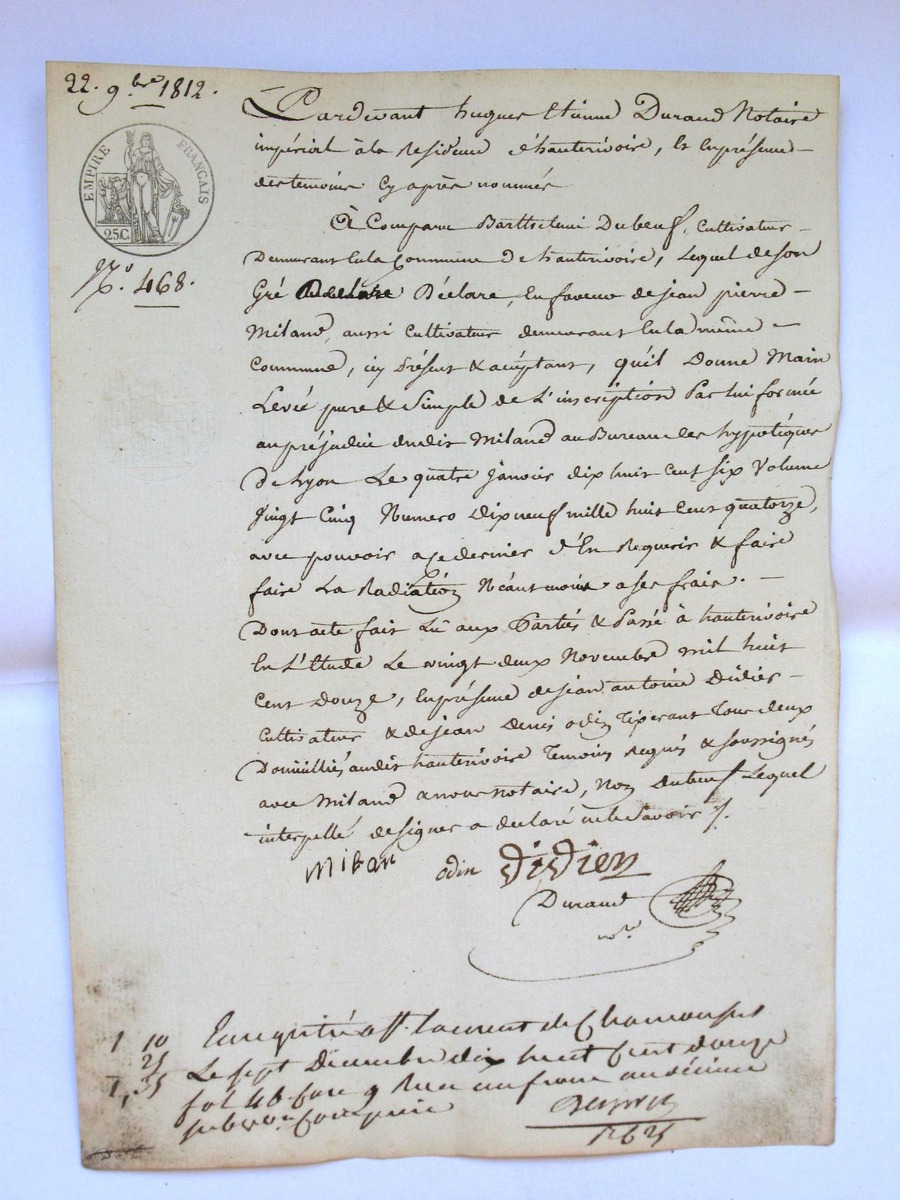 22. 9.bre 1812.
EMPIRE FRANÇAIS
25C.
N.o 468.
Pardevant hugues Etienne Durand Notaire
impérial à la Residence d'hauterivoire, & Enprésence
des temoins Cy après nommés
A Comparu Barthelemi Dubeuf, Cultivateur
Demeurant Enla Commune De hauterivoire, Lequel de son
Gré Déclare, En faveur de jean pierre
Miland, aussi Cultivateur demeurant Enla même
Commune, icy Présent & acéptant, qu'il Donne Main
Levée pure & Simple de L'inscription Par lui formée
au préjudice dudit Miland au Bureau des hypotéques
De Lyon Le quatre janvier dix huit Cent Six Volume
Vingt Cinq Numero Dix neuf mille huit Cent quatorze,
avec pouvoir a ce dernier d'En Requerir & faire
faire La Radiation Néantmoins a ses frais.
Dont acte fait Lû aux Parties & Passé à hauterivoire
En L'Etude Le vingt deux Novembre mil huit
Cent Douze, Enprésence de jean antoine Didier
Cultivateur & de jean Denis odin Tixerant Tous deux
Domiciliés audit hauterivoire Temoins Requis & soussignés
avec Miland & nous Notaire, Non Dubeuf Lequel
interpellé de signer a declaré ne le Savoir /.
Milan odin Didier
Durand
nre
1 10 Enregistré à St. Laurent de Chamousset
Le sept Décembre dix huit Cent douze
fol 46 Case 9 Reçu un franc un décime
subvon Comprise